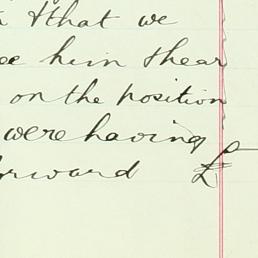 that we
him thear
on the position
were having
orward £